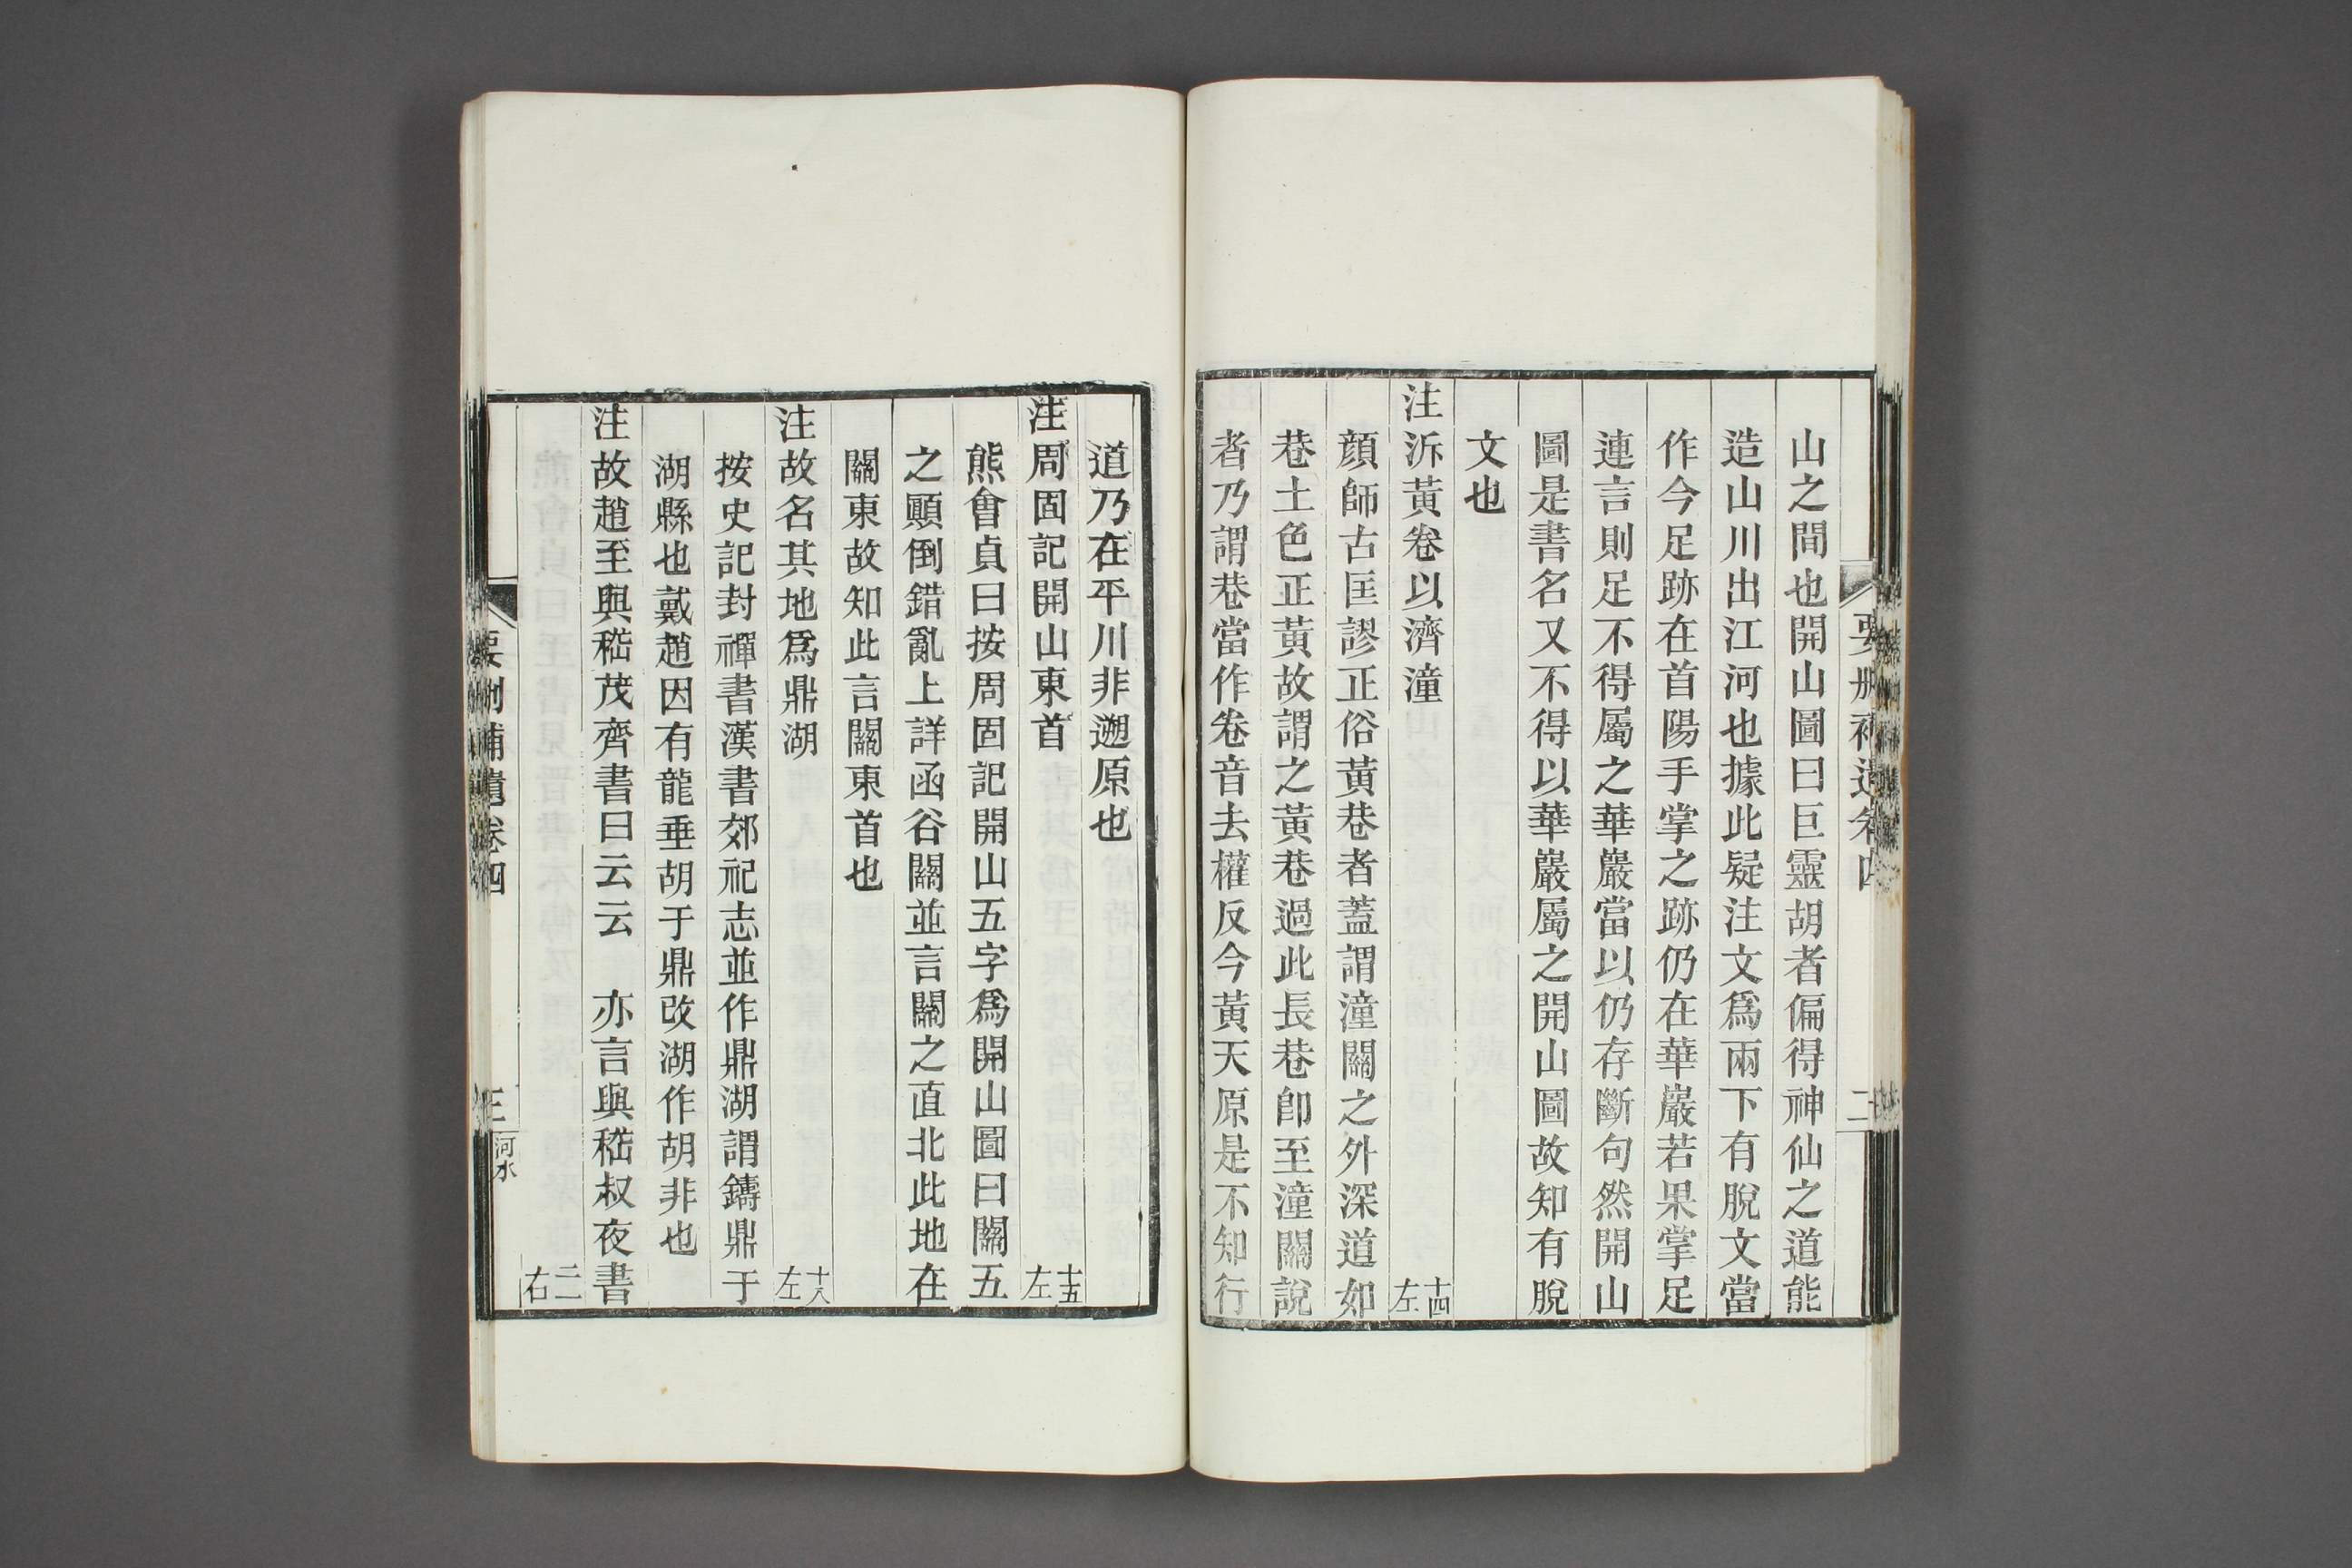 要刪補遺卷四
二
山之間也開山圖曰巨靈胡者偏得神仙之道能
造山川出江河也據此疑注文爲兩下有脫文當
作今足跡在首陽手掌之跡仍在華巖若果掌足
連言則足不得屬之華巖當以仍存斷句然開山
圖是書名又不得以華巖屬之開山圖故知有脫
文也
注泝黃卷以濟潼 十四左
顏師古匡謬正俗黃巷者蓋謂潼關之外深道如
巷土色正黃故謂之黃巷過此長巷卽至潼關說
者乃謂巷當作卷音去權反今黃天原是不知行
道乃在平川非遡原也
注周固記開山東首 十五左
熊會貞曰按周固記開山五字爲開山圖曰關五
之顚倒錯亂上詳函谷關並言關之直北此地在
關東故知此言關東首也
注故名其地爲鼎湖 十八左
按史記封禪書漢書郊祀志並作鼎湖謂鑄鼎于
湖縣也戴趙因有龍垂胡于鼎改湖作胡非也
注故趙至與嵇茂齊書曰云云　亦言與嵇叔夜書 二二右
要刪補遺卷四
三
河水